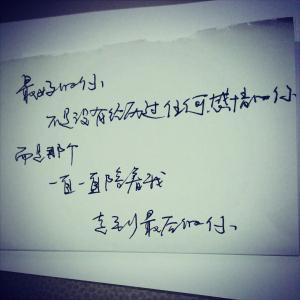 最好的你、
不是没有给予过任何感情的你
而是那个
一直一直陪着我
走到最后的你、